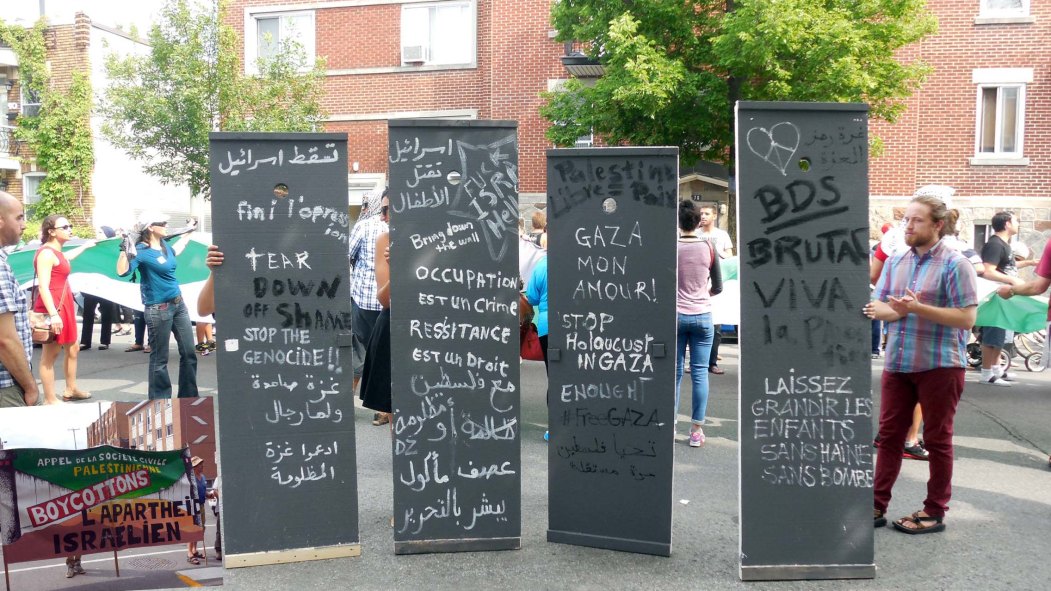 تسقط اسرائيل
fini l'opress
ion
TEAR
DOWN
OFF SHAME
STOP THE
GENOCIDE!!
غزة صامدة
ولها رجال
ادعوا غزة
المظلومة
اسرائيل
تقتل
الأطفال
Bring down
the wall
OCCUPATION
EST UN CRIME
RESISTANCE
EST UN DROIT
مع فلسطين
ظالمة أو مظلومة
DZ
عصف مأكول
يبشر بالتحرير
Palestine
Libre = Paix
GAZA
MON
AMOUR!
STOP
Holocaust
IN GAZA
ENOUGHT
#FreeGAZA
تحيا فلسطين
حرة مستقلة
غزة رمز
العزة
BDS
BRUTAL
VIVA
la
LAISSEZ
GRANDIR LES
ENFANTS
SANS HAINE
SANS BOMBE
APPEL DE LA SOCIÉTÉ CIVILE
PALESTINIENNE
BOYCOTTONS
L'APARTHEID
ISRAELIEN